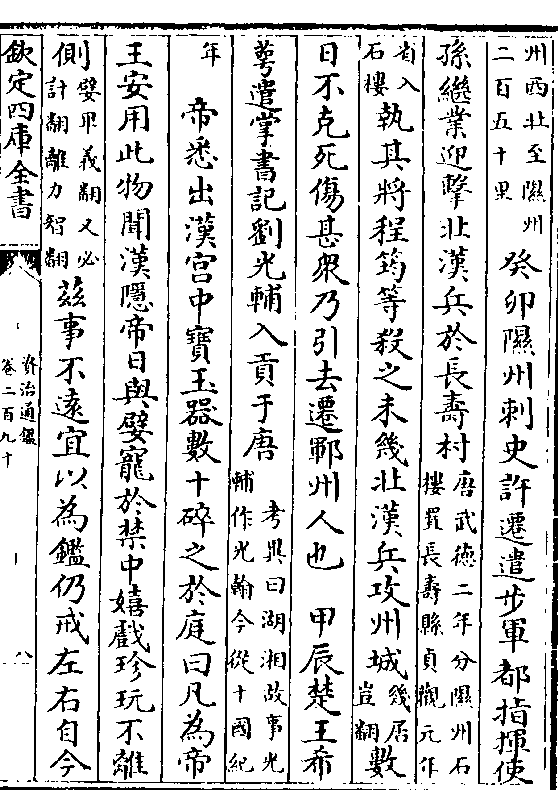 州西北至隰州二百五十里癸卯隰州刺史許遷遣步軍都指揮使
孫繼業迎擊北漢兵於長壽村唐武德二年分隰州石樓置長壽縣貞觀元年
省入石樓執其將程筠等殺之未幾北漢兵攻州城幾居豈翻數
日不克死傷甚衆乃引去遷鄆州人也 甲辰楚王希
萼遣掌書記劉光輔入貢于唐考異曰湖湘故事光輔作光翰今從十國紀
年 帝悉出漢宮中寶玉器數十碎之於庭曰凡為帝
王安用此物聞漢隱帝日與嬖寵於禁中嬉戲珍玩不離
側嬖卑義翻又必計翻離力智翻茲事不遠宜以為鑑仍戒左右自今
欽定四庫全書
資治通鑑
卷二百九十
八